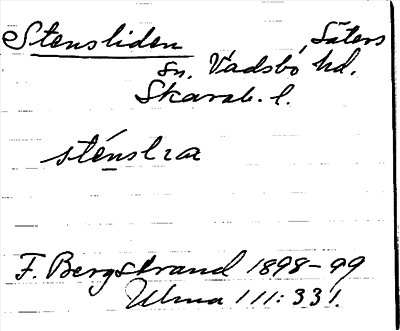 Stensliden Säters
sn, Vadsbo hd.
Skarab. l.
sténslıa
F. Bergstrand 1898-99
Ulma 111:331.